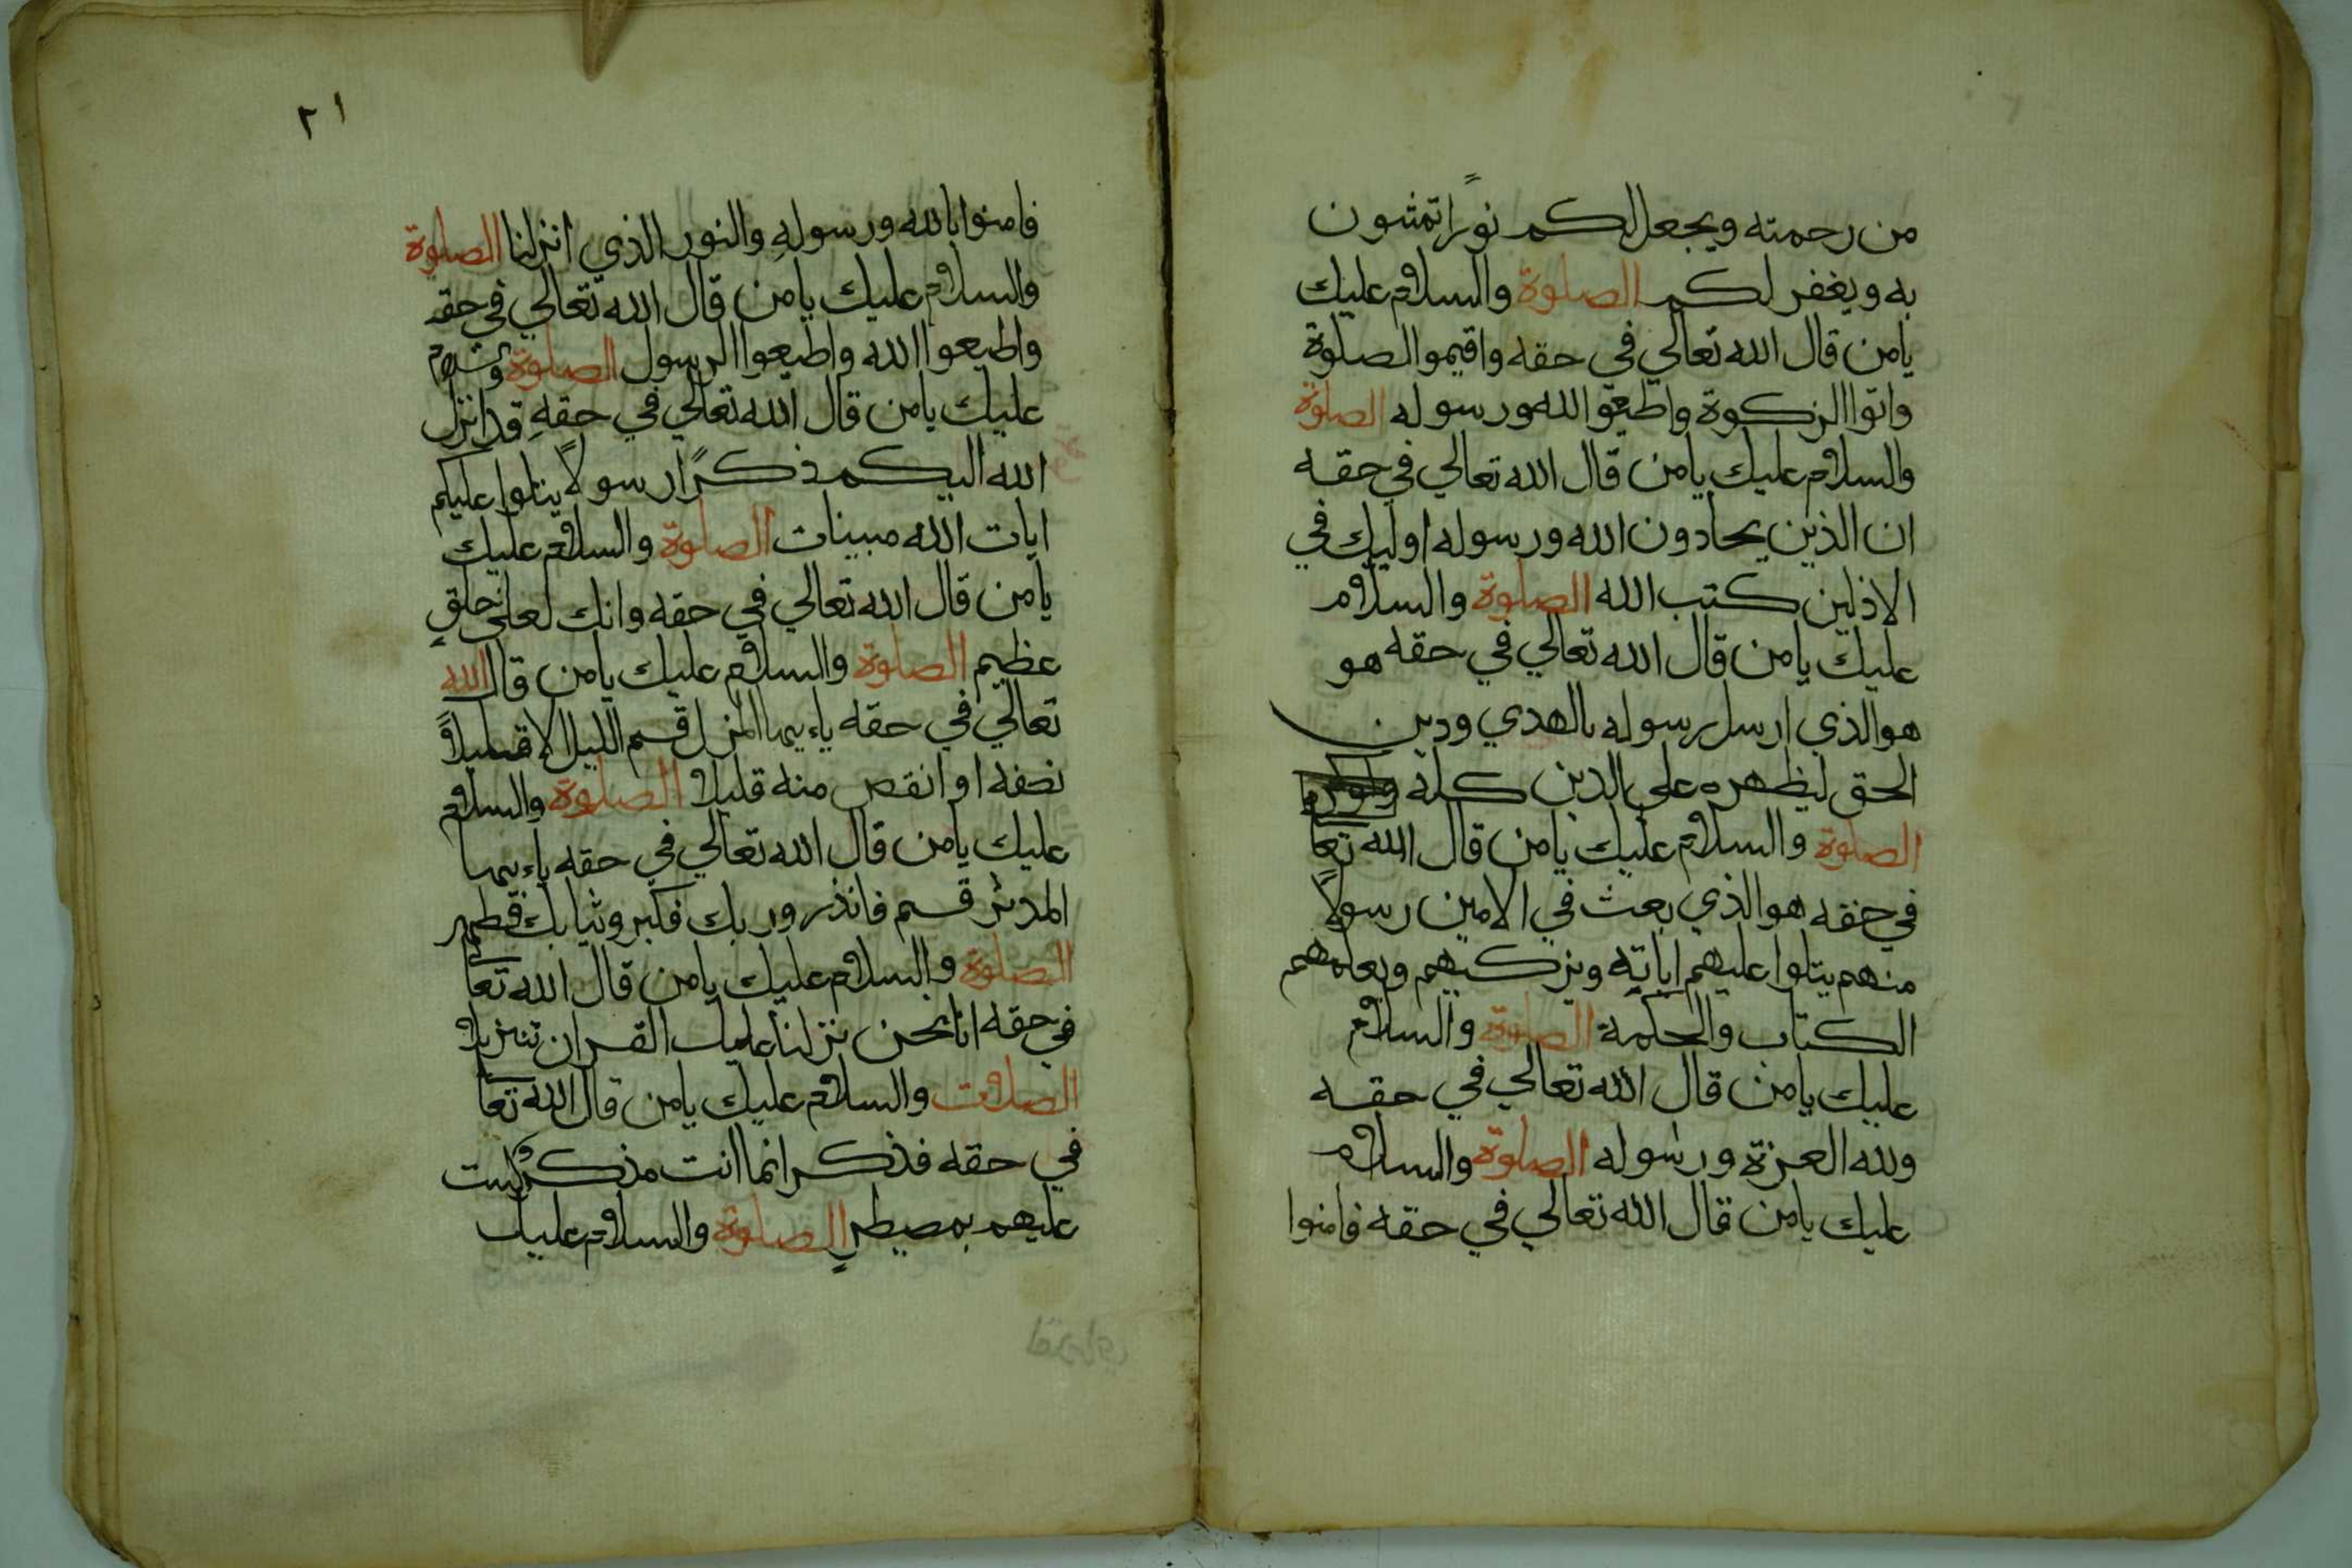 من رحمته ويجعل لكم نورًا تمشون
به ويغفر لكم الصلوة والسلام عليك
يامن قال الله تعالي في حقه واقيموا الصلوة
واتوا الزكوة واطيعوا الله ورسوله الصلوة
والسلام عليك يامن قال الله تعالي في حقه
ان الذين يحادون الله ورسوله اوليك في
الاذلين كتب الله الصلوة والسلام
عليك يامن قال الله تعالي في حقه هو
هو الذي ارسل رسوله بالهدي ودين
الحق ليظهره علي الدين كله
الصلوة والسلام عليك يامن قال الله تعا
في حقه هو الذي بعث في الامين رسولاً
منهم يتلوا عليهم اياته ويزكيهم ويعلمهم
الكتاب والحكمة الصلوة والسلام
عليك يامن قال الله تعالي في حقه
ولله العزة ورسوله الصلوة والسلام
عليك يامن قال الله تعالي في حقه فامنوا
٢١
فامنوا بالله ورسولهِ والنور الذي انزلنا الصلوة
والسلام عليك يامن قال الله تعالي في حقه
واطيعوا الله واطيعوا الرسول الصلوة والسلام
عليك يامن قال الله تعالي في حقهِ قد انزل
الله اليكم ذكرًا رسولاً يتلوا عليكم
ايات الله مبينات الصلوة والسلام عليك
يامن قال الله تعالي في حقه وانك لعلي خلقٍ
عظيم الصلوة والسلام عليك يامن قال الله
تعالي في حقه ياءيها المزمل قم الليل الا قليلاً
نصفه او انقص منه قليلا الصلوة والسلام
عليك يامن قال الله تعالي في حقه ياءيها
المدثر قم فانذر وربك فكبر وثيابك فطهر
الصلوة والسلام عليك يامن قال الله تعا
في حقه انا نحن نزلنا عليك القران تنزيلا
الصلات والسلام عليك يامن قال الله تعا
في حقه فذكر انما انت مذكر لست
عليهم بمصيطرٍ الصلوة والسلام عليك